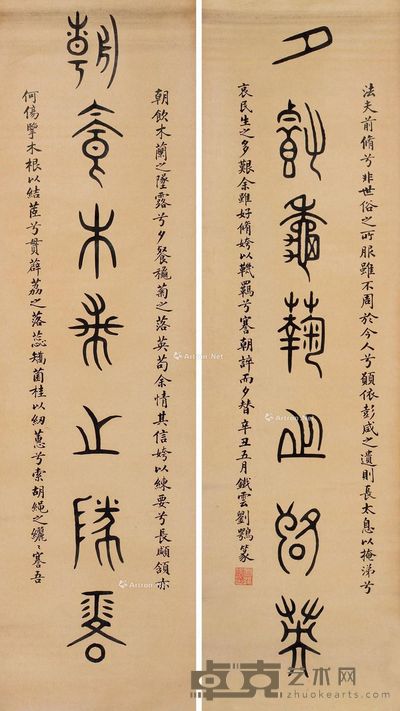 朝飲木蘭之墜露
朝飲木蘭之墜露兮夕餐龝菊之落英苟余情其信姱以練要兮長顑頷亦
何傷擥木根以結茝兮貫薜荔之落蕊矯菌桂以紉蕙兮索胡繩之纚〻謇吾
夕餐秋菊之落英
法夫前脩兮非世俗之所服雖不周於今人兮願依彭咸之遺則長太息以掩涕兮
哀民生之多艱余雖好脩姱以鞿羈兮謇朝誶而夕替 辛丑五月鐵雲劉鶚篆
Artron.Net
Artron.Net
Artron.Net
Artron.Net
卓克艺术网
zhuokearts.com